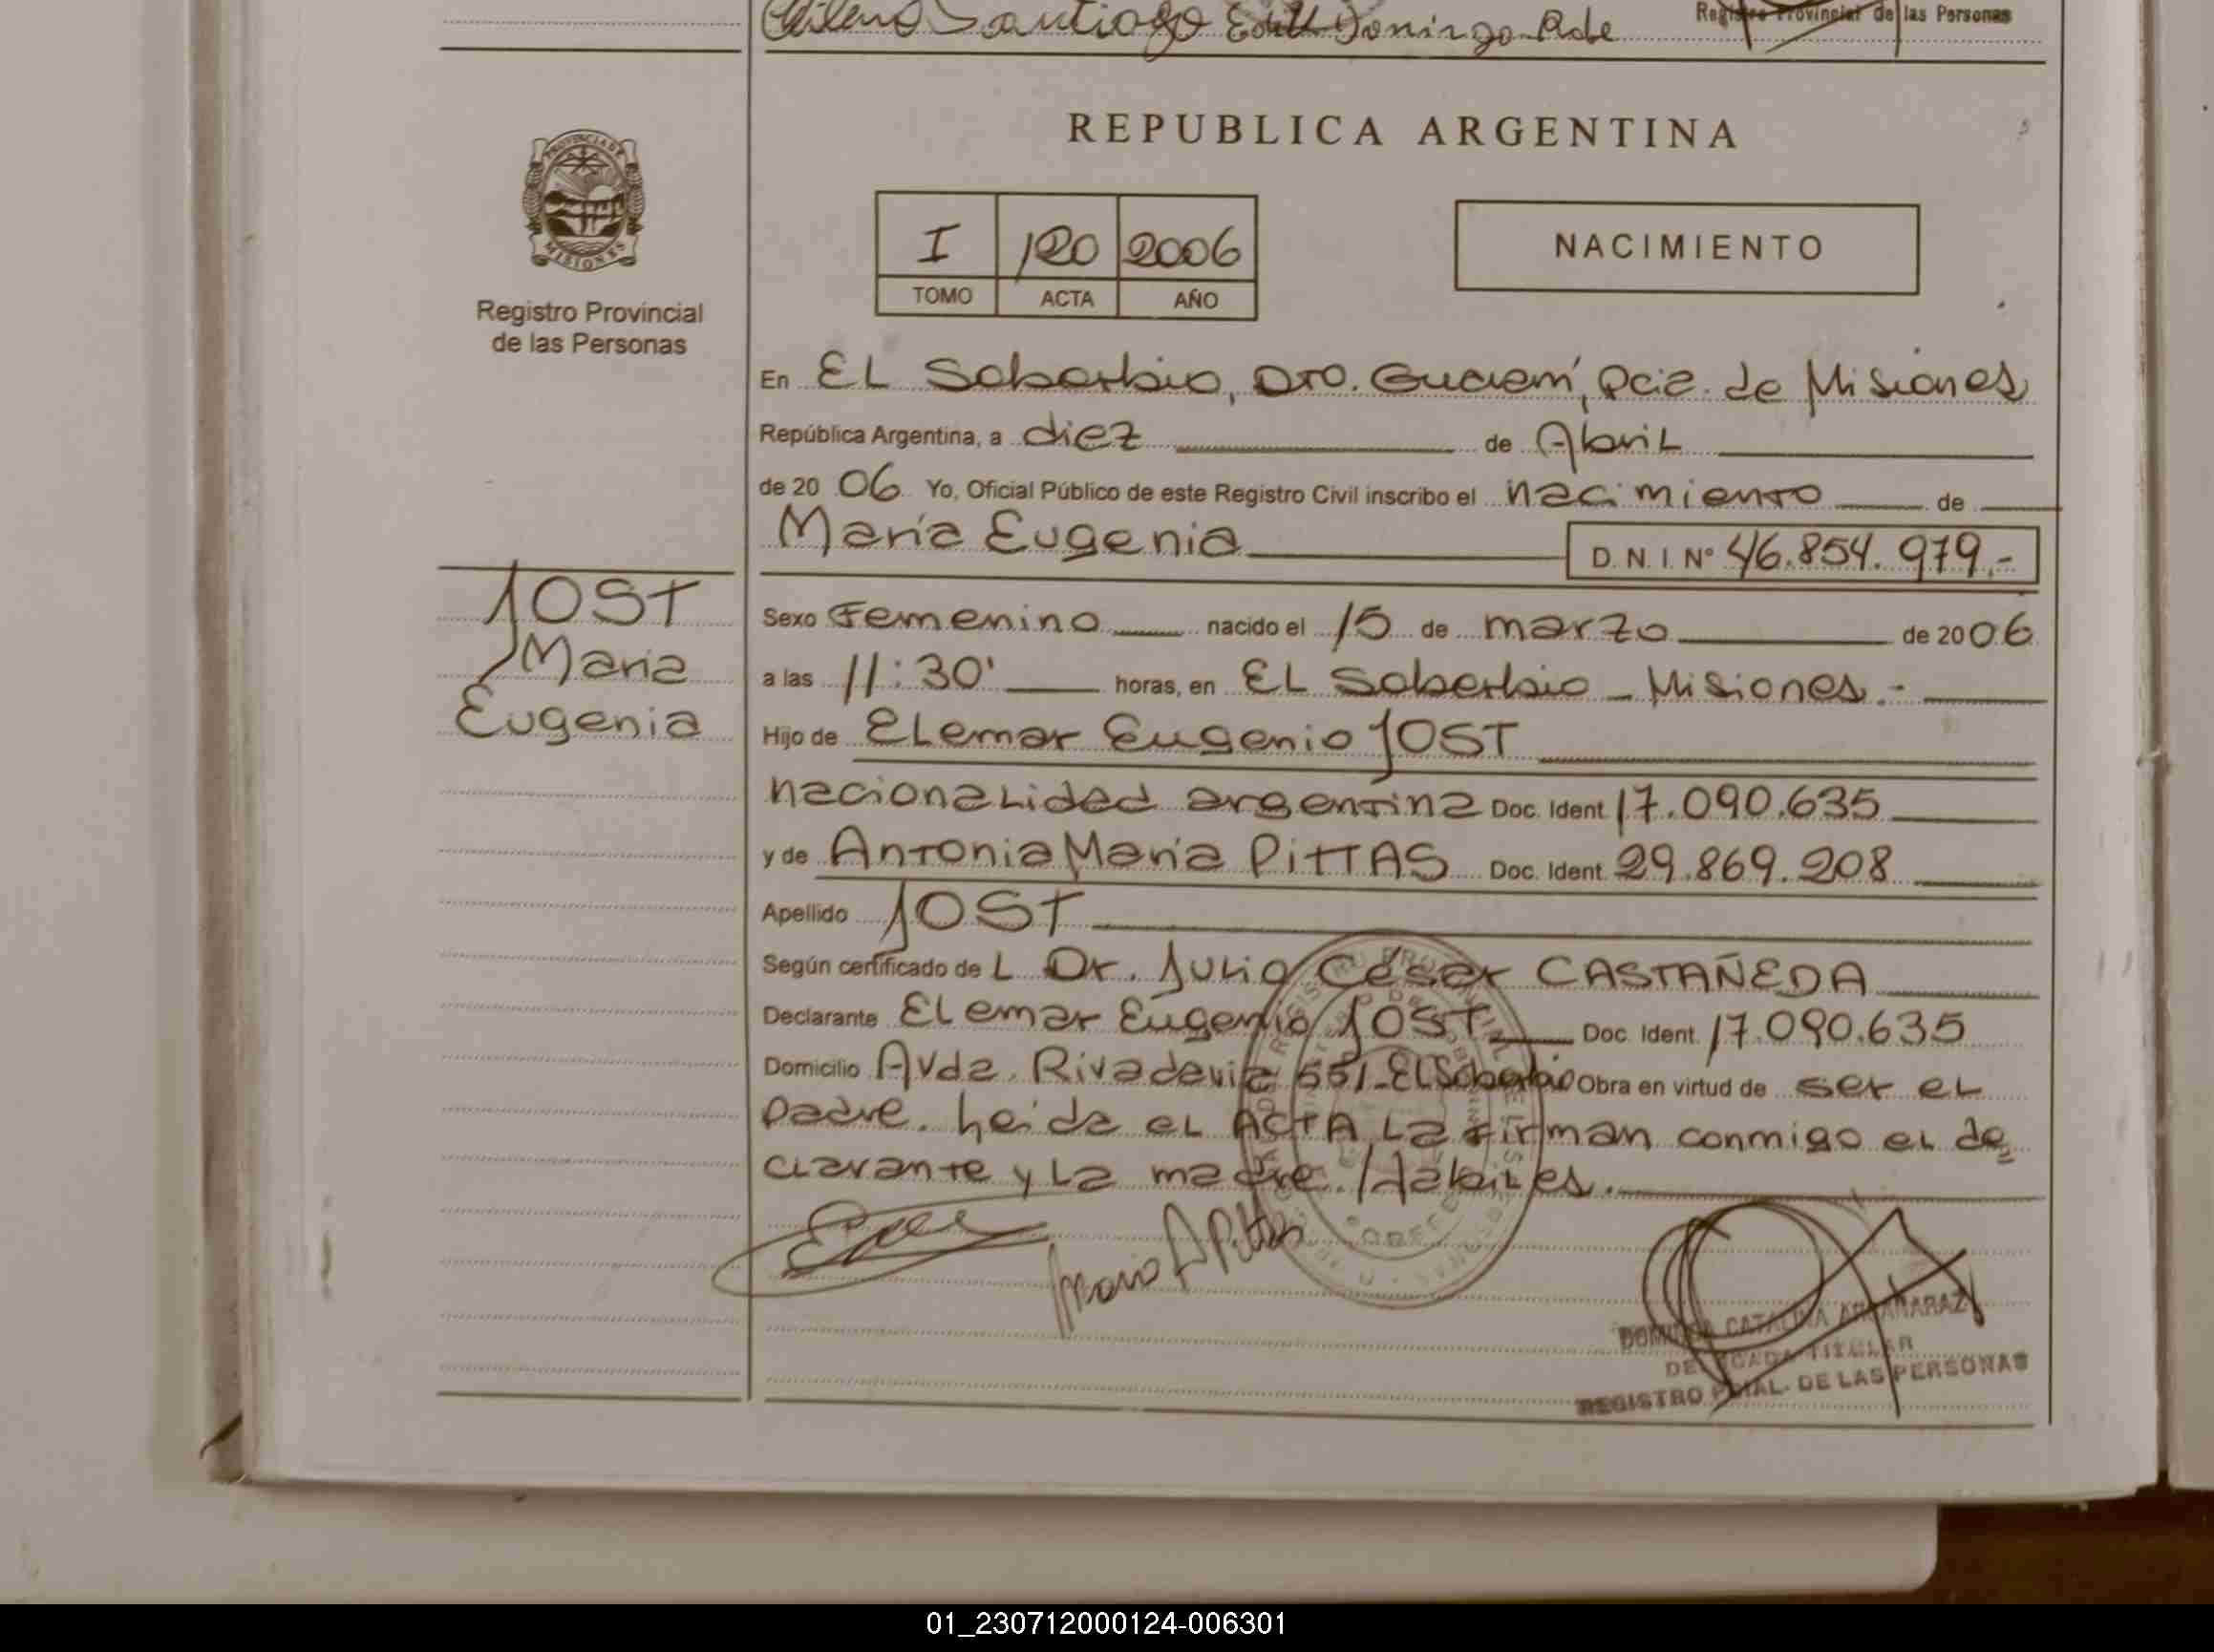 Santiago Domingo
Registro Provincial de las Personas
REPUBLICA ARGENTINA
PROVINCIA DE
MISIONES
Registro Provincial
de las Personas
I 120 2006
TOMO ACTA AÑO
NACIMIENTO
En EL Soberbio, Dto. Guaraní, Pcia. de Misiones
República Argentina, a diez de Abril
de 20 06 Yo, Oficial Público de este Registro Civil inscribo el nacimiento de
María Eugenia
D. N. I. Nº 46.854.979.-
JOST
María
Eugenia
Sexo Femenino nacido el 15 de marzo de 2006
a las 11:30' horas, en EL Soberbio - Misiones.-
Hijo de ELemar Eugenio JOST
nacionalidad argentina Doc. Ident. 17.090.635
y de Antonia María PITTAS Doc. Ident. 29.869.208
Apellido JOST
Según certificado de L Dr. Julio César CASTAÑEDA
Declarante ELemar Eugenio JOST Doc. Ident. 17.090.635
Domicilio Avda. Rivadavia 551-EL Soberbio Obra en virtud de ser el
padre. Leida el ACTA La firman conmigo el de
clarante y La madre. / Habiles.
Maria A Pittas
CATALINA
DELEGADA TITULAR
REGISTRO PCIAL. DE LAS PERSONAS
01_230712000124-006301